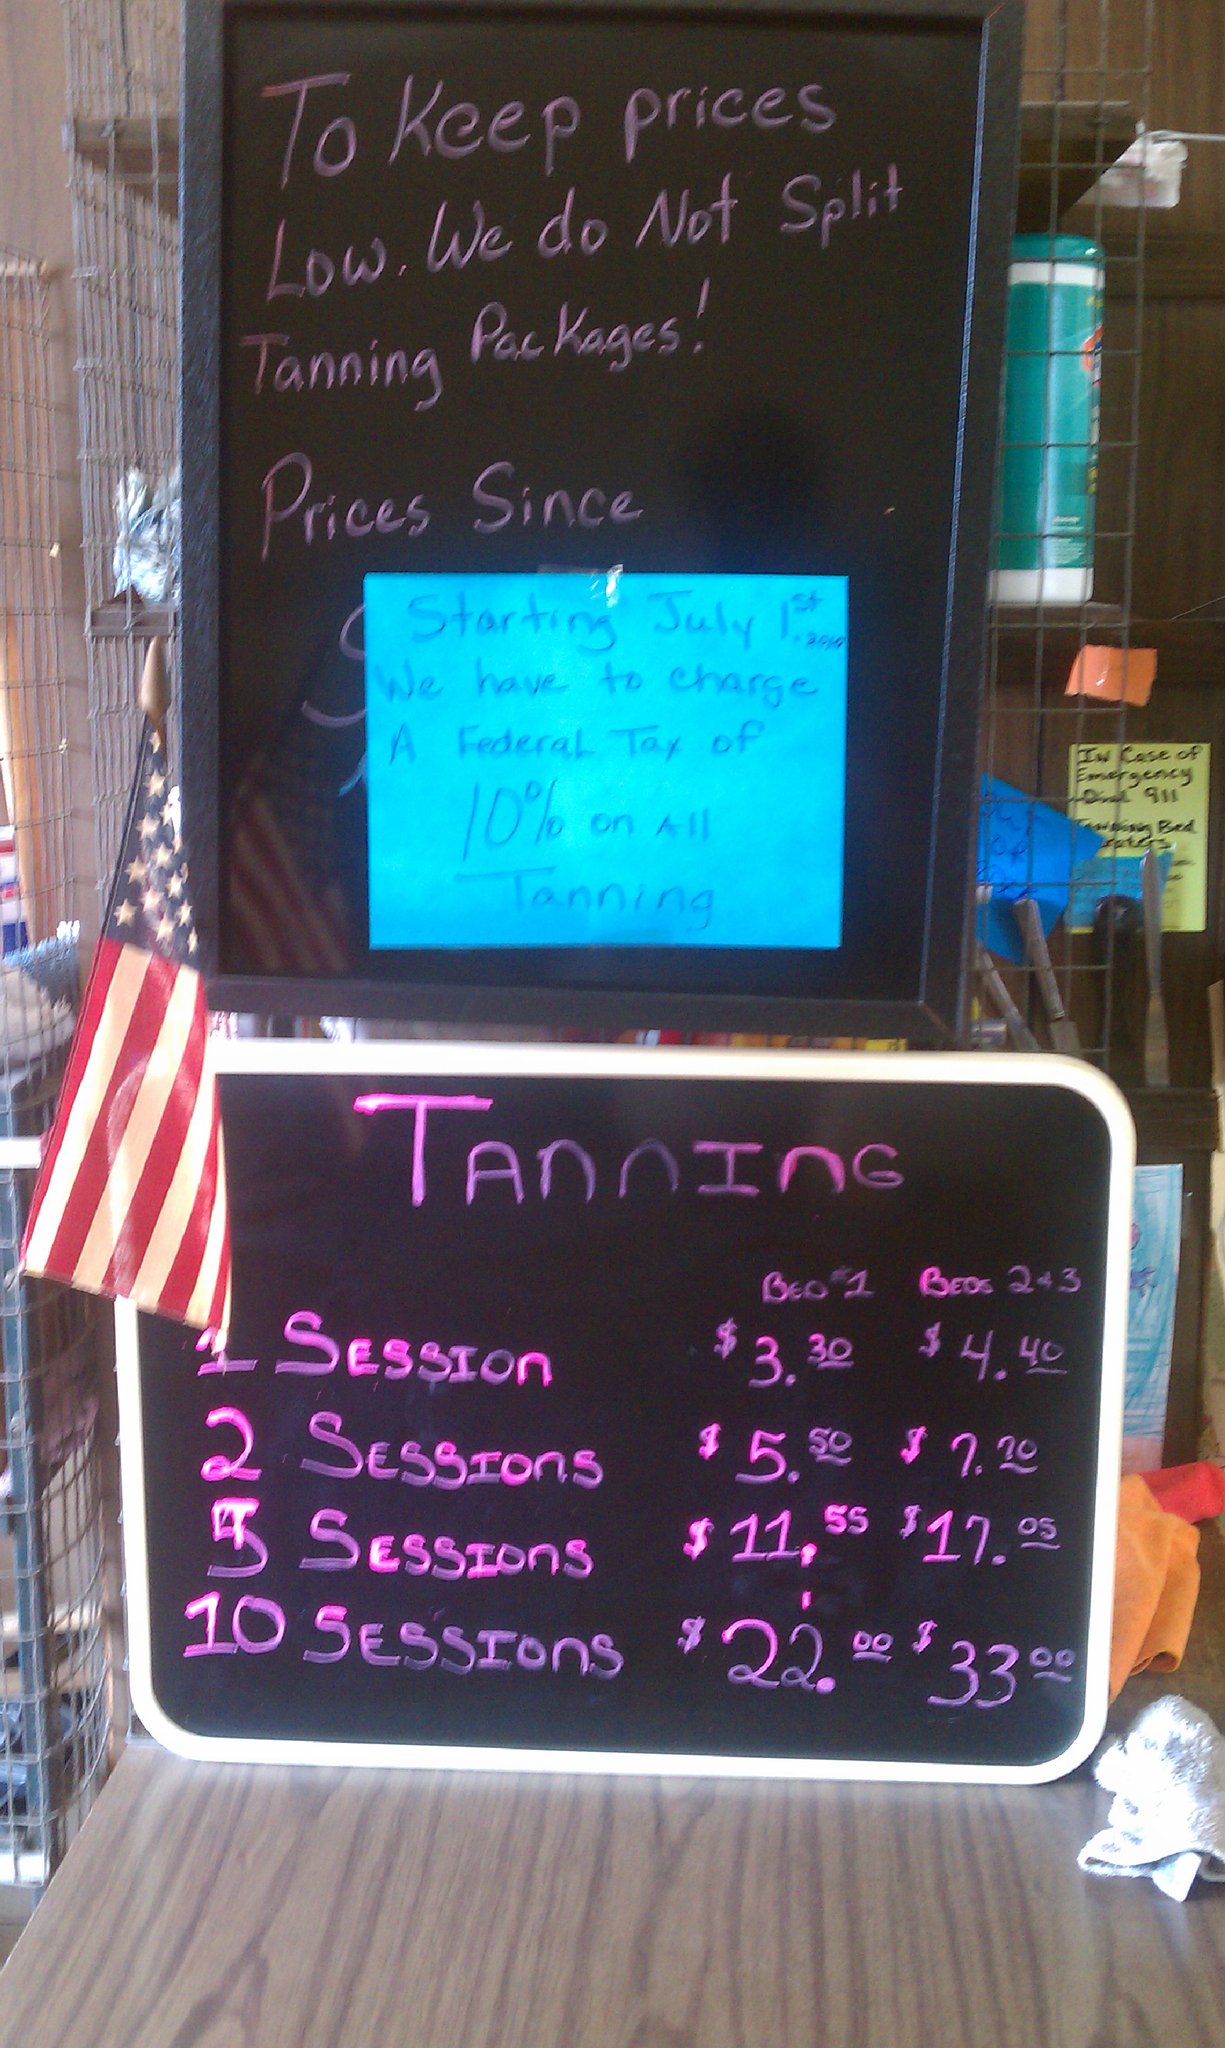 To Keep prices
Low. We do Not Split
Tanning Packages!
Prices Since
Starting July 1st. 2010
We have to charge
A Federal Tax of
10% on All
Tanning
In Case of
Emergency
Dial 911
Tanning Bed
TANNING
BED #1 BEDS 2+3
1 SESSION $3.30 $4.40
2 SESSIONS $5.50 $7.70
5 SESSIONS $11.55 $17.05
10 SESSIONS $22.00 $33.00